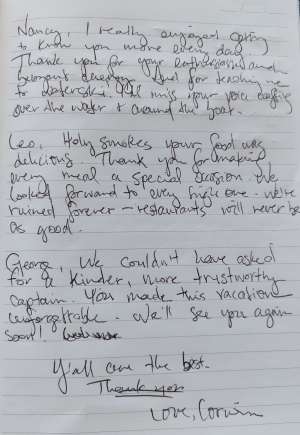 Nancy, I really enjoyed getting
to know you more every day.
Thank you for your enthusiasm and
And for teaching me
to waterski! I'll miss your voice
over the water & around the boat.
Leo, Holy smokes your food was
delicious. Thank you for making
every meal a special occasion. We
looked forward to every single one. We're
ruined forever – restaurants will never be
as good.
George, We couldn't have asked
for a kinder, more trustworthy
captain. You made this vacation
unforgettable. We'll see you again
soon!
Y'all are the best.
Thank you
Love, Corwin